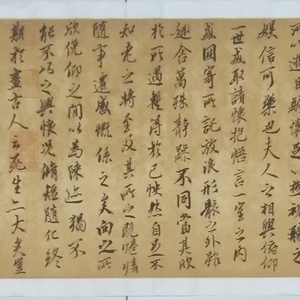 所以遊目騁懷足以極視聽之
娛信可樂也夫人之相與俯仰
一世或取諸懷抱悟言一室之內
或因寄所託放浪形骸之外雖
趣舍萬殊靜躁不同當其欣
於所遇蹔得於己怏然自足不
知老之將至及其所之既惓情
隨事遷感慨係之矣向之所
欣俛仰之間以為陳迹猶不
能不以之興懷況脩短隨化終
期於盡古人云死生亦大矣豈